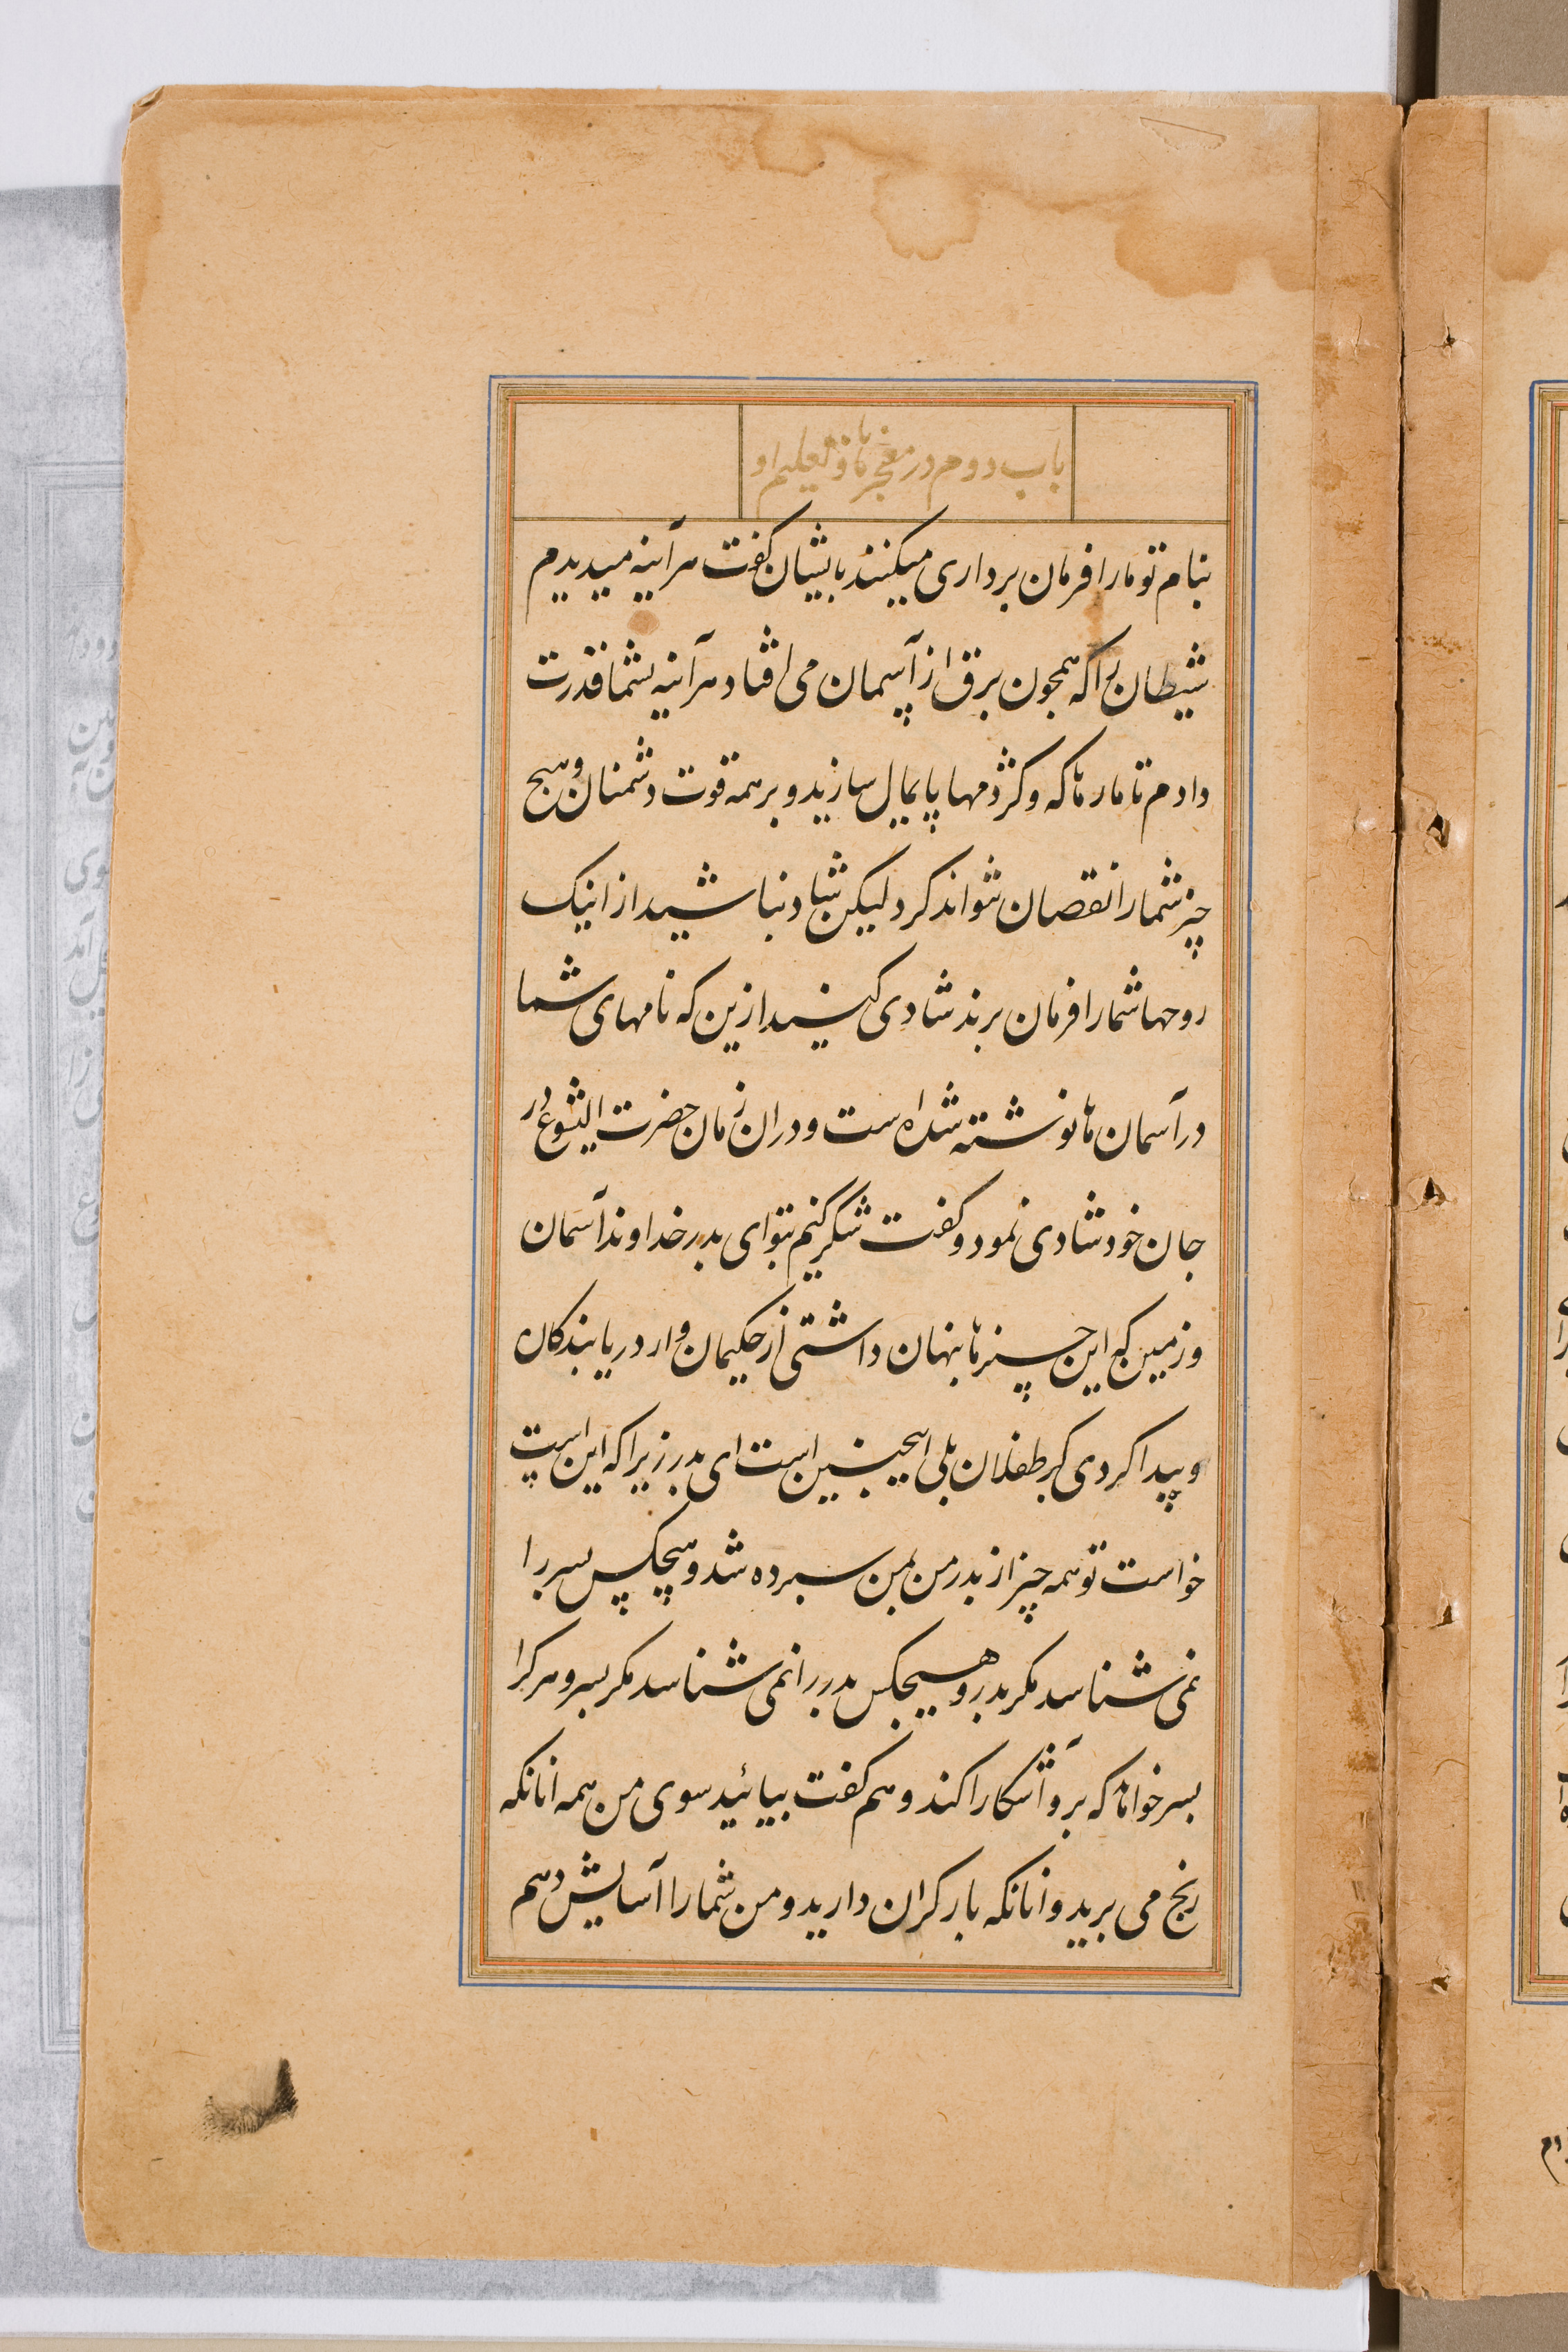 باب دوم در معجزها و تعلیم او
بنام تو ما را فرمان برداری میکنند بایشان کفت هر آینه میدیدم
شیطان را که همچون برق از آسمان می افتاد هر آینه بشما قدرت
دادم تا مارها که و کژدمها پایمال سازید و بر همه قوت دشمنان و هیچ
چیز شما را نقصان نتواند کرد لیکن شاد نباشید از اینک
روحها شما را فرمان برند شادی کنید ازین که نامهای شما
در آسمان ها نوشته شده است و دران زمان حضرت ایشوع در
جان خود شادی نمود و کفت شکر کنم بتو ای بدر خداوند آسمان
و زمین که این چیزها بنهان داشتی از حکیمان و از دریابندکان
و پیدا کردی بر طفلان بلی اینچنین است ای بدر زیرا که این است
خواست تو همه چیز از بدر من بمن سبرده شد و هیچکس بسر را
نمی شناسد مکر بدر و هیچکس بدر را نمی شناسد مکر بسر و هر کرا
بسر خواهد که برو آشکارا کند و هم کفت بیائید سوی من همه انانکه
رنج می برید و انانکه بار کران دارید و من شما را آسایش دهم